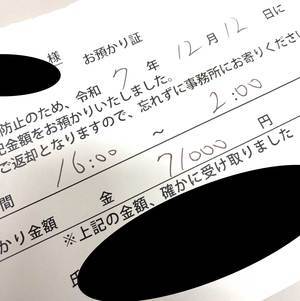 様 お預かり証
防止のため、令和 7 年 12 月 12 日に
記金額をお預かりいたしました。
ご返却となりますので、忘れずに事務所にお寄りくださ
間 16:00 ～ 2:00
かり金額 金 71000 円
※上記の金額、確かに受け取りました